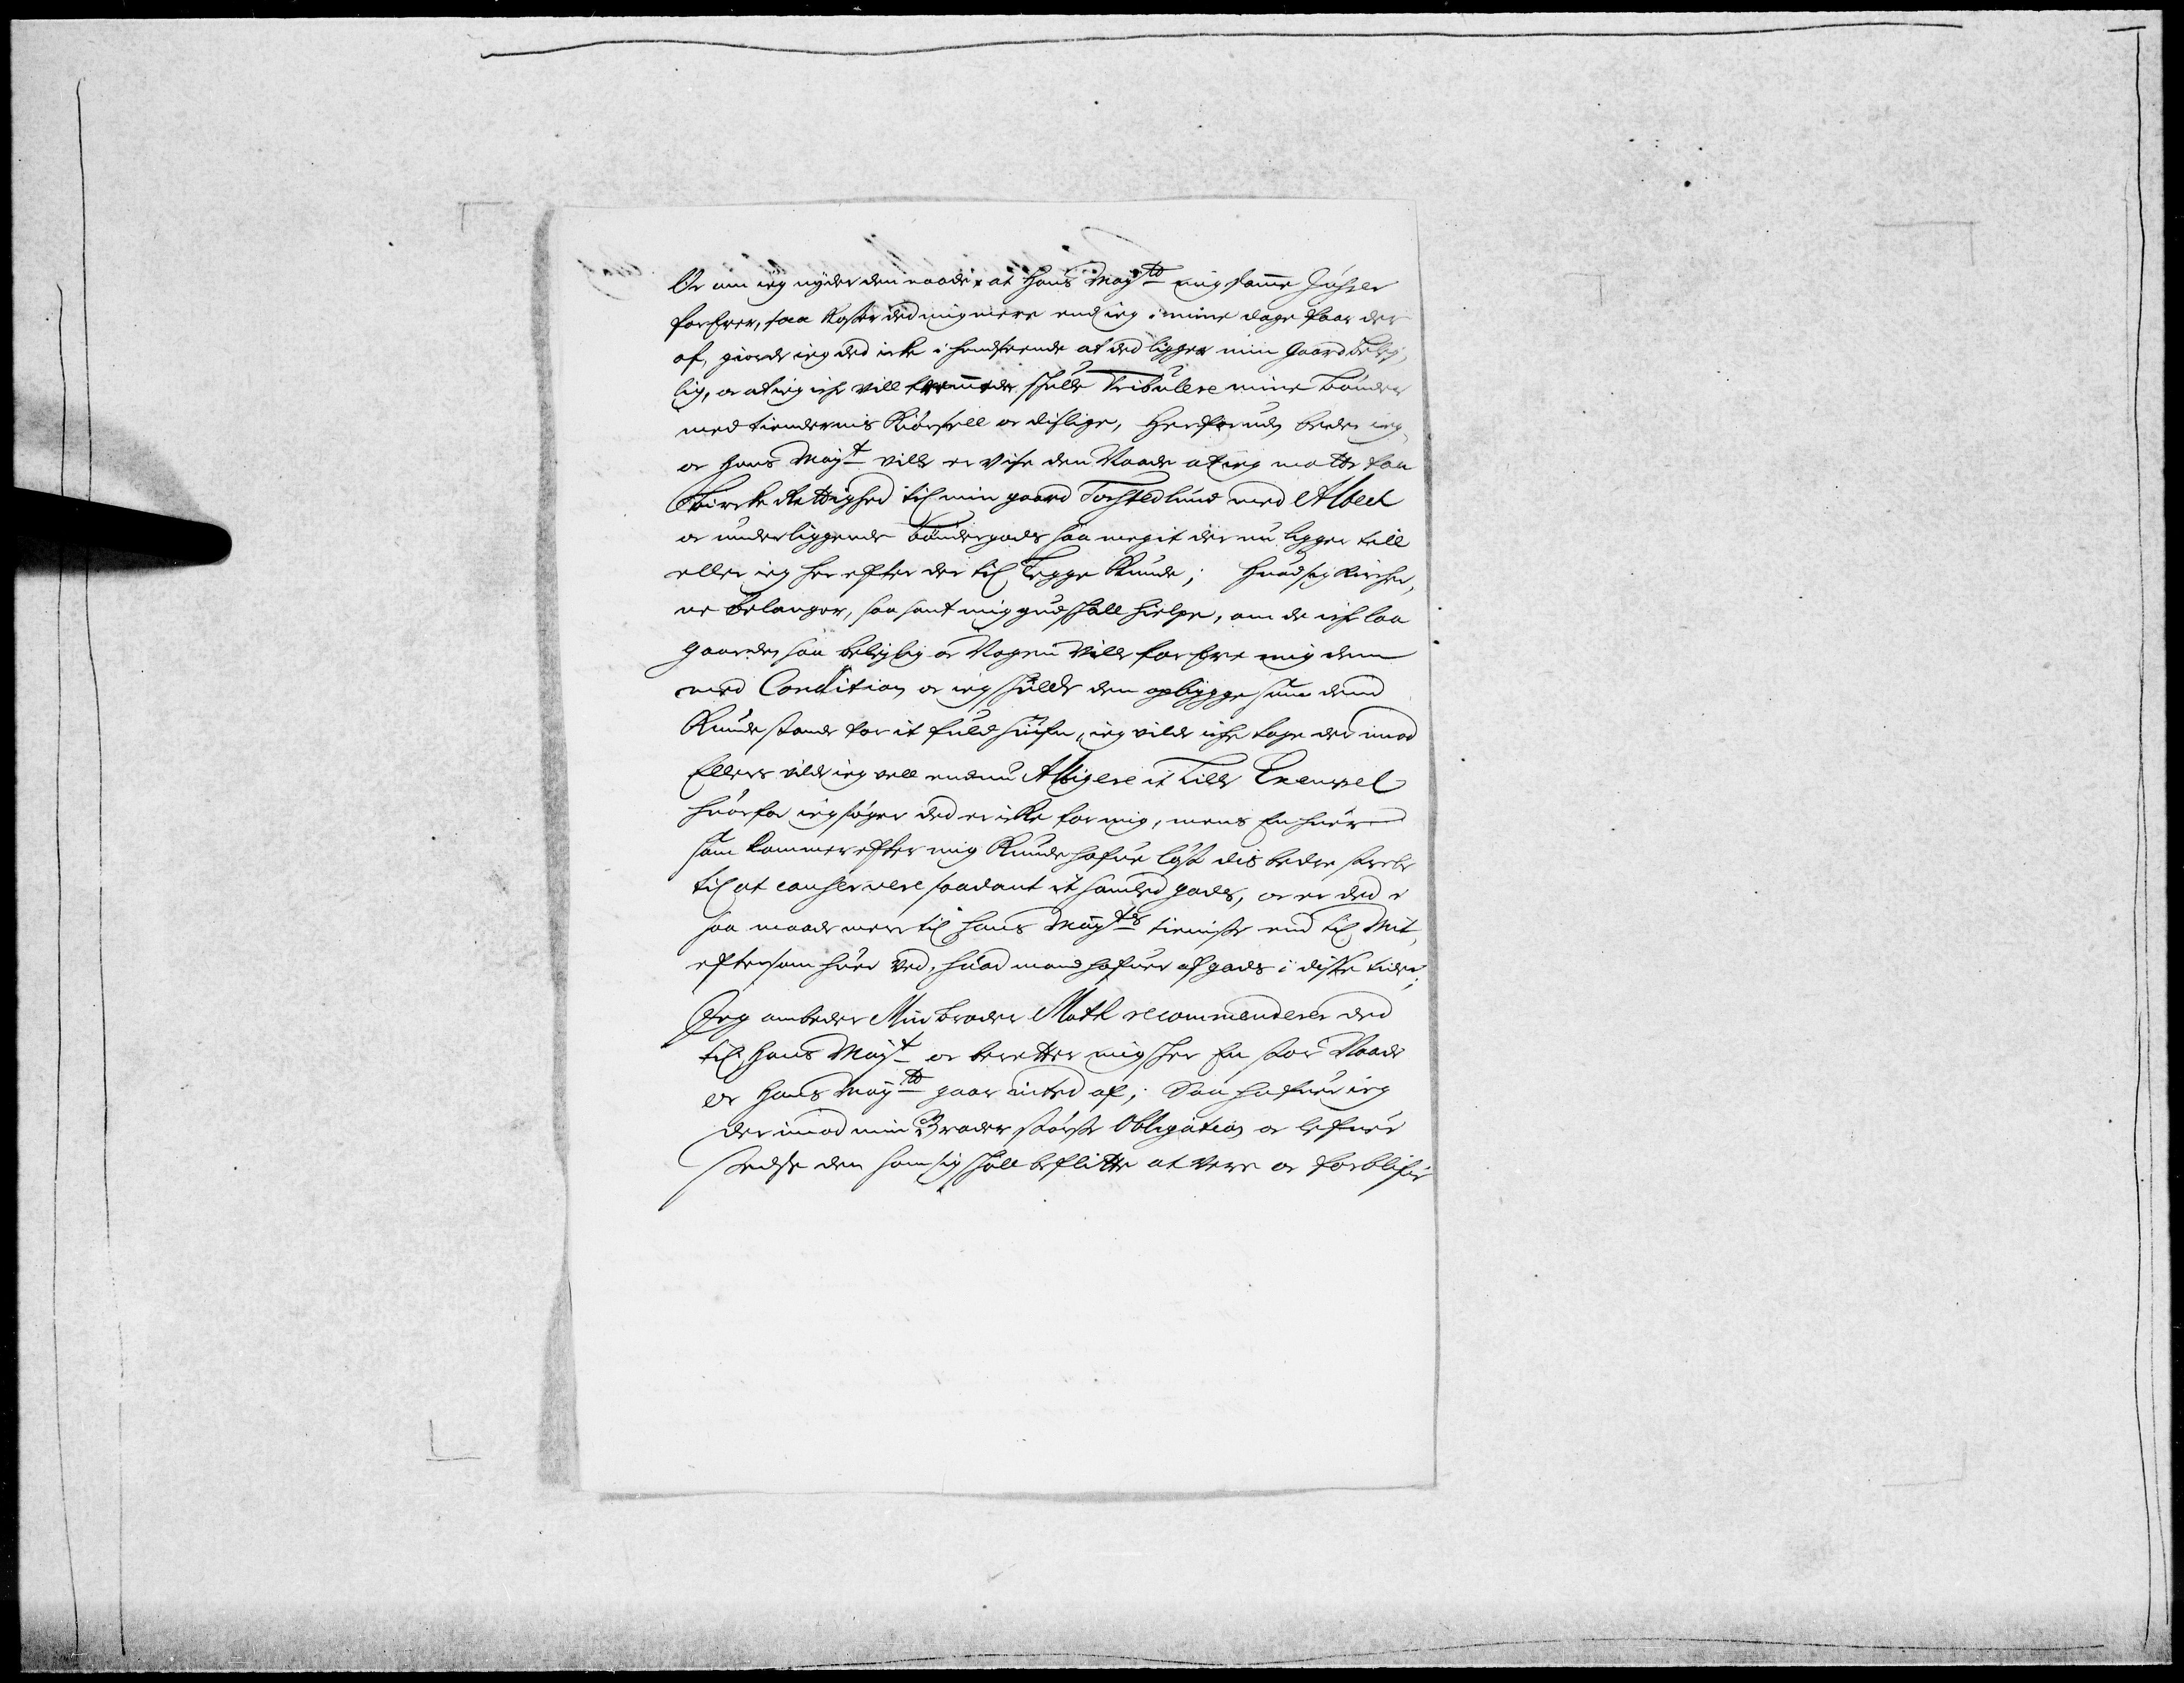 Or om ieg nyder den naade at Hans Mayᵗᵗ mig samme
forErer, saa Koster ded mig mere end ieg i mine dage faar der
af, giorde ieg ded icke i henseende at ded ligger min Gaard belej,
lig, oc at ieg icke vill skulle Tribulere mine bønder
med tiendernis Kiørsell oc dislige, Herforuden beder ieg,
or Hans Mayᵗ ville er Vise den Naade at ieg motte faa
Bircke Rettighed til min gaard Torstedlund med Albech
oc underliggende bøndergods saa megit der nu ligger till
eller ieg her efter der til Legge Kunde; Huad sig Kircher,
ne belanger, saa sant mig gud skall hielpe, om de icke laa
gaarden saa belejlig oc Nogen Ville forEre mig dem
med Condition or ieg skulde dem opbygge som dend
Kunde stande for it fuld huuse, ieg vilde icke tage der imod
Ellers vilde ieg vell endnu Alligere it Lille Exempel
huorfor ieg søger ded er icke for mig, mens En huer
som kommer efter mig Kunde hafue lyst dis bedre
til at conservere saadant it samled gods, oc er ded i
saa maade mere til Hans Mayᵗᵗˢ tieniste end til Mit,
eftersom huer Ved, huad mand hafuer af gods i disse tider;
Jeg ombeder Min broder Moth recommenderer ded
til Hans Mayᵗ oc beretter mig skeer En stor Naade
or Hans Mayᵗᵗ gaar inted af; Saa hafuer ieg
der imod min Broder største Obligation oc lefuer
stedse den som sig skall beflitte at Vere oc forblifue